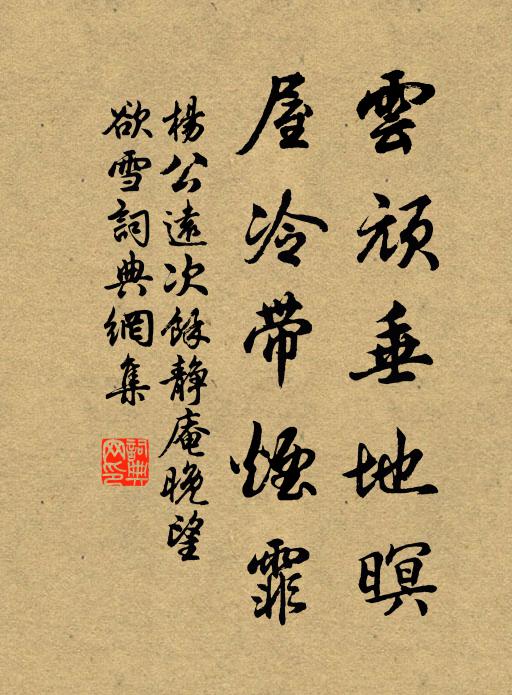 雲頑垂地暝
屋冷帶煙霏
楊公遠次餘靜庵晚望
欲雪詞典網集
詞典网印